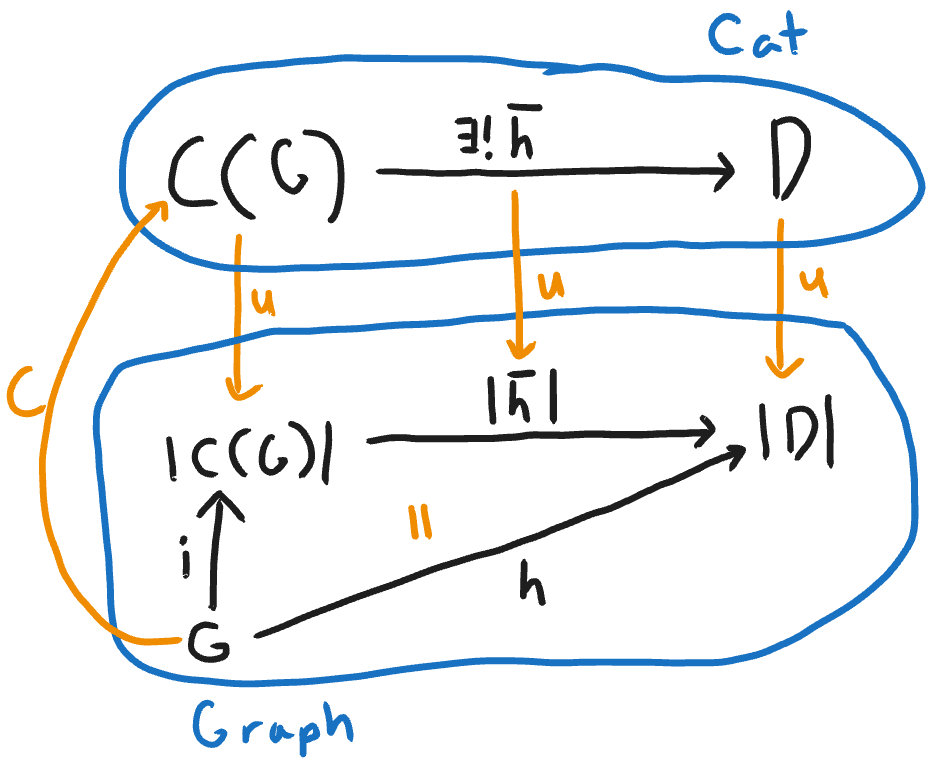 Cat
∃! h̅
C(G) D
u u u
C
|h̅|
|C(G)| |D|
i =
h
G
Graph